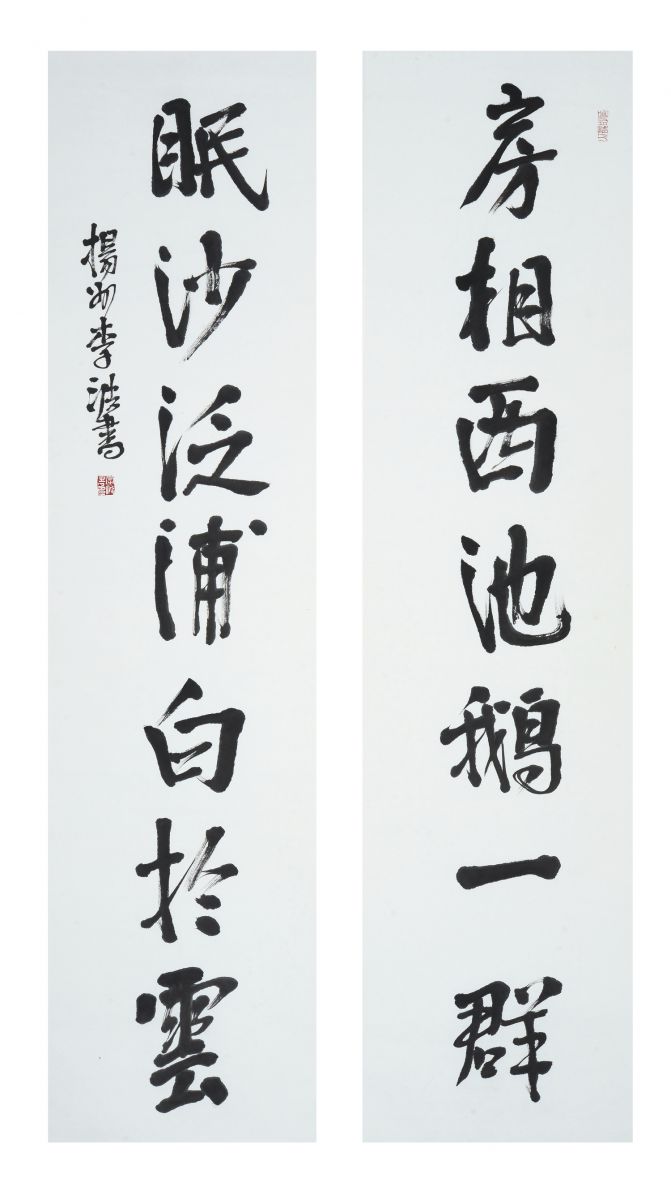 房相西池鵝一群
眠沙泛浦白於雲
揚州李浩書